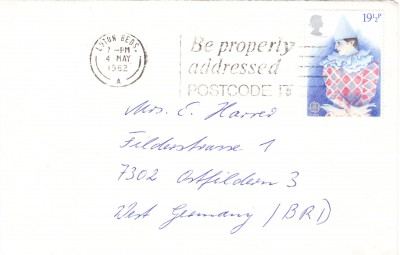 LUTON BEDS.
7-PM
4 MAY
1982
A
Be properly
addressed
POSTCODE IT
19½p
Mrs. E. Harrer
Felderstrasse 1
7302 Ostfildern 3
West Germany (BRD)